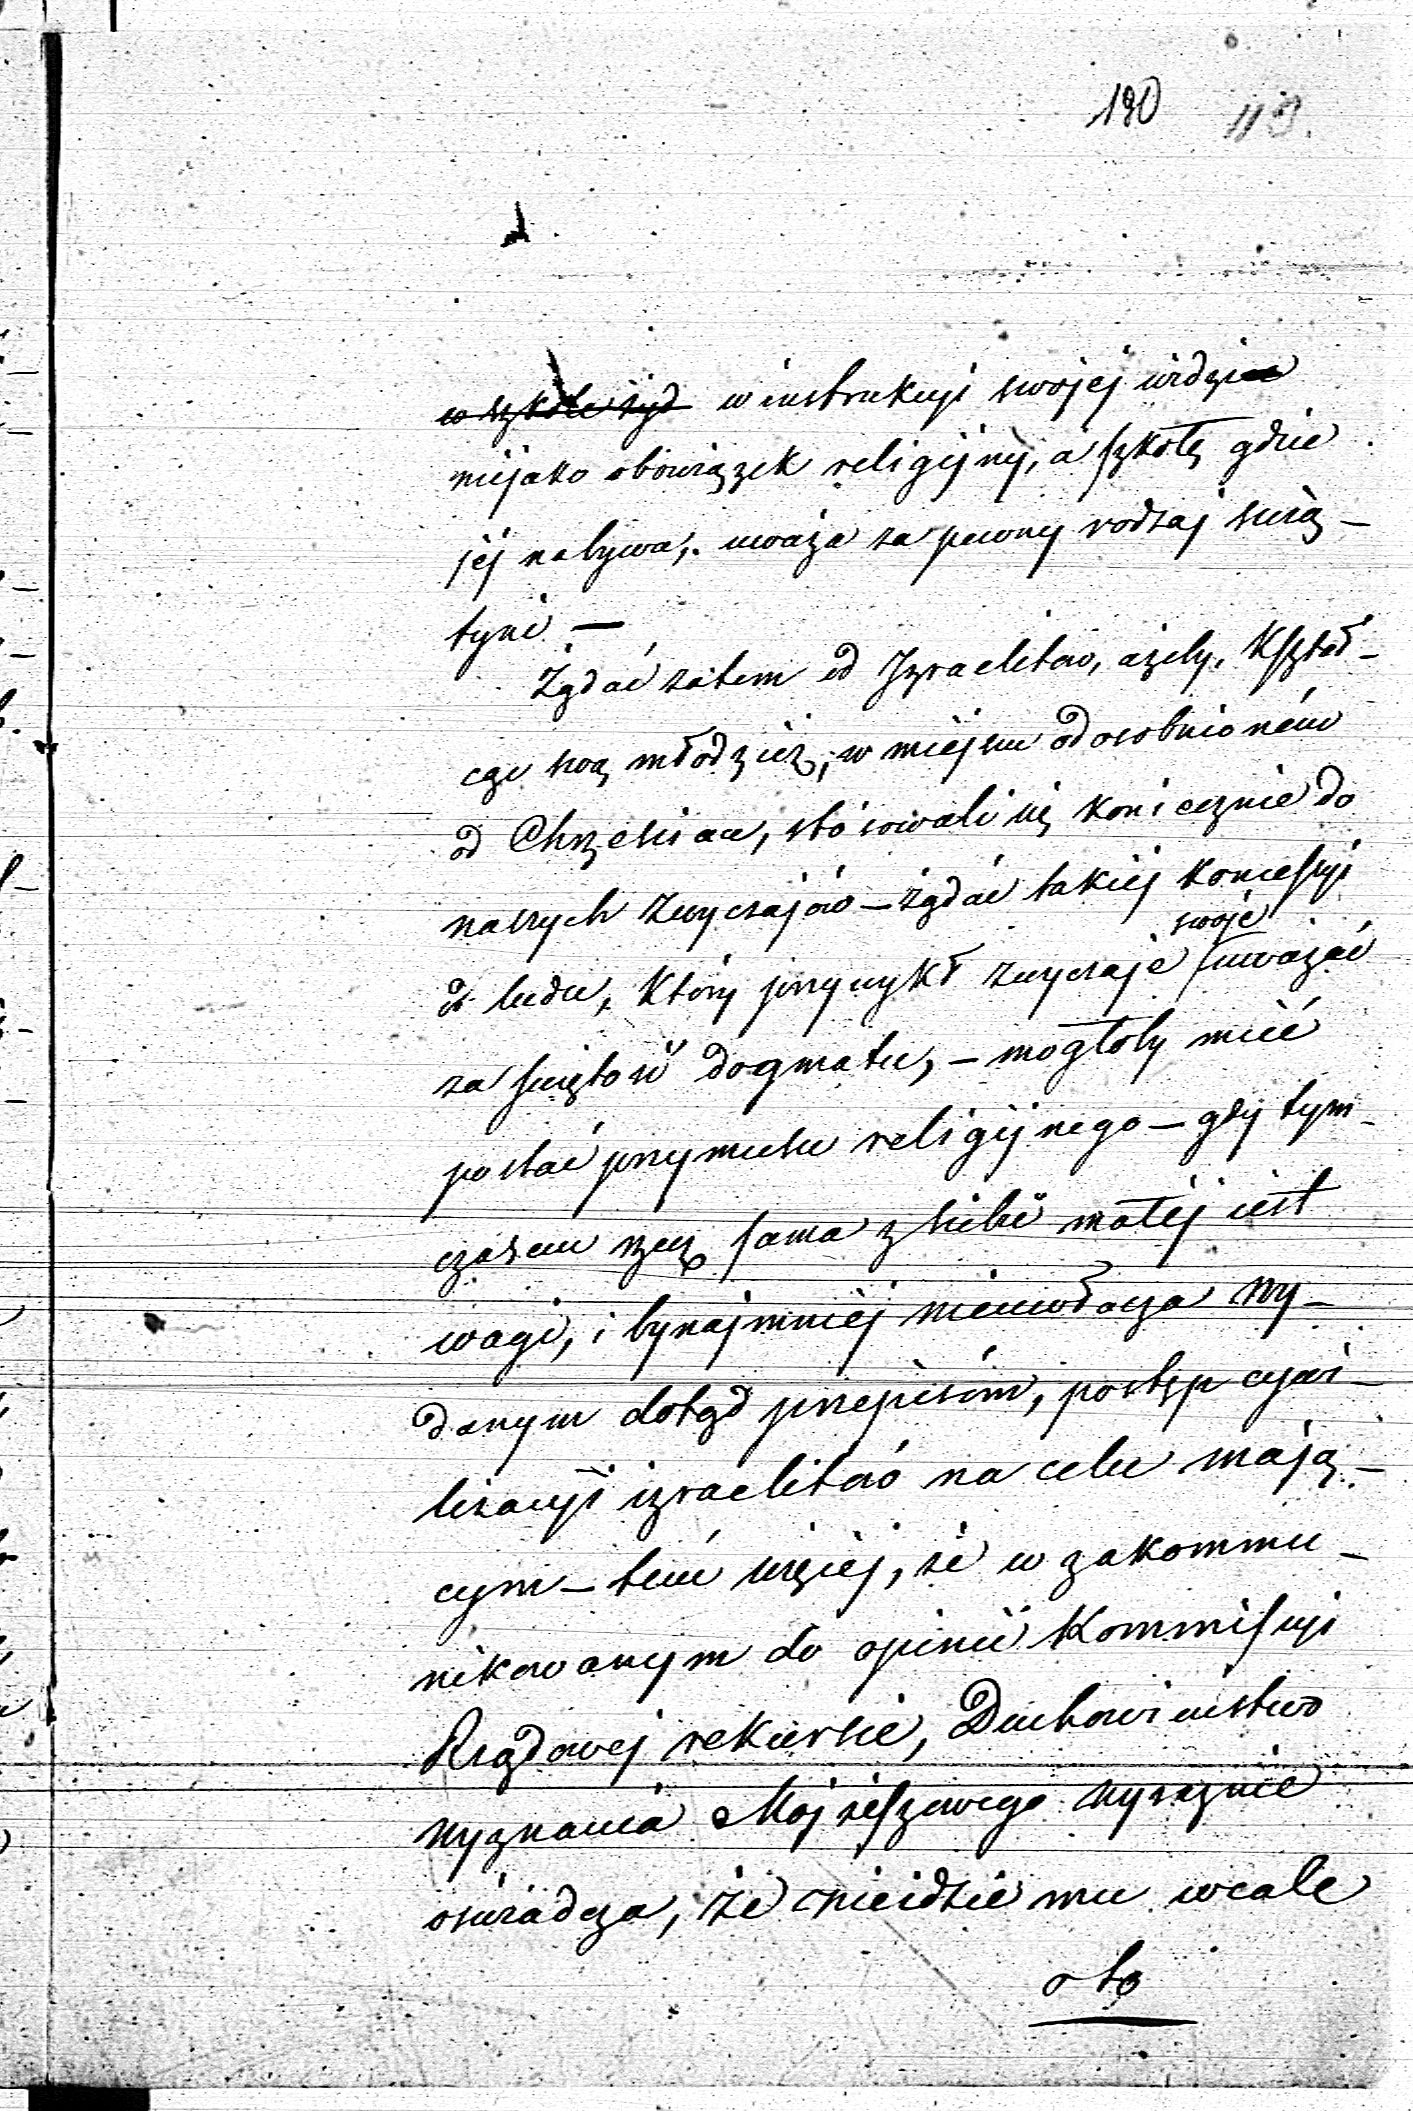 190 113.
w szkole żyd w instrukcyi swojej widzi
niejako obowiązek religijny, a szkołę gdzie
jéj nabywa, uważa za pewny rodzaj świą-
tyni —
Żądać zatem od Izraelitów, ażeby, kształ-
cąc swą młodzież, w miejscu odosobnioném
od Chrześcian, stósowali się koniecznie do
naszych zwyczajów — żądać takiéj koncessyi
od ludu, który przywykł zwyczaje swoje uważać
za świętość dogmatu, — mogłoby mieć
postać przymusu religijnego — gdy tym-
czasem rzecz sama z siebie małéj iest
wagi, i bynajmniéj nieuwłacza wy-
danym dotąd przepisóm, postęp cywi-
lizacyi izraelitów na celu mają-
cym — tém więcéj, że w zakommu-
nikowanym do opinii Kommissyi
Rządowej rekursie, Duchowieństwo
wyznania Mojżeszowego wyraznie
oświadcza, że nieidzie mu wcale
o to